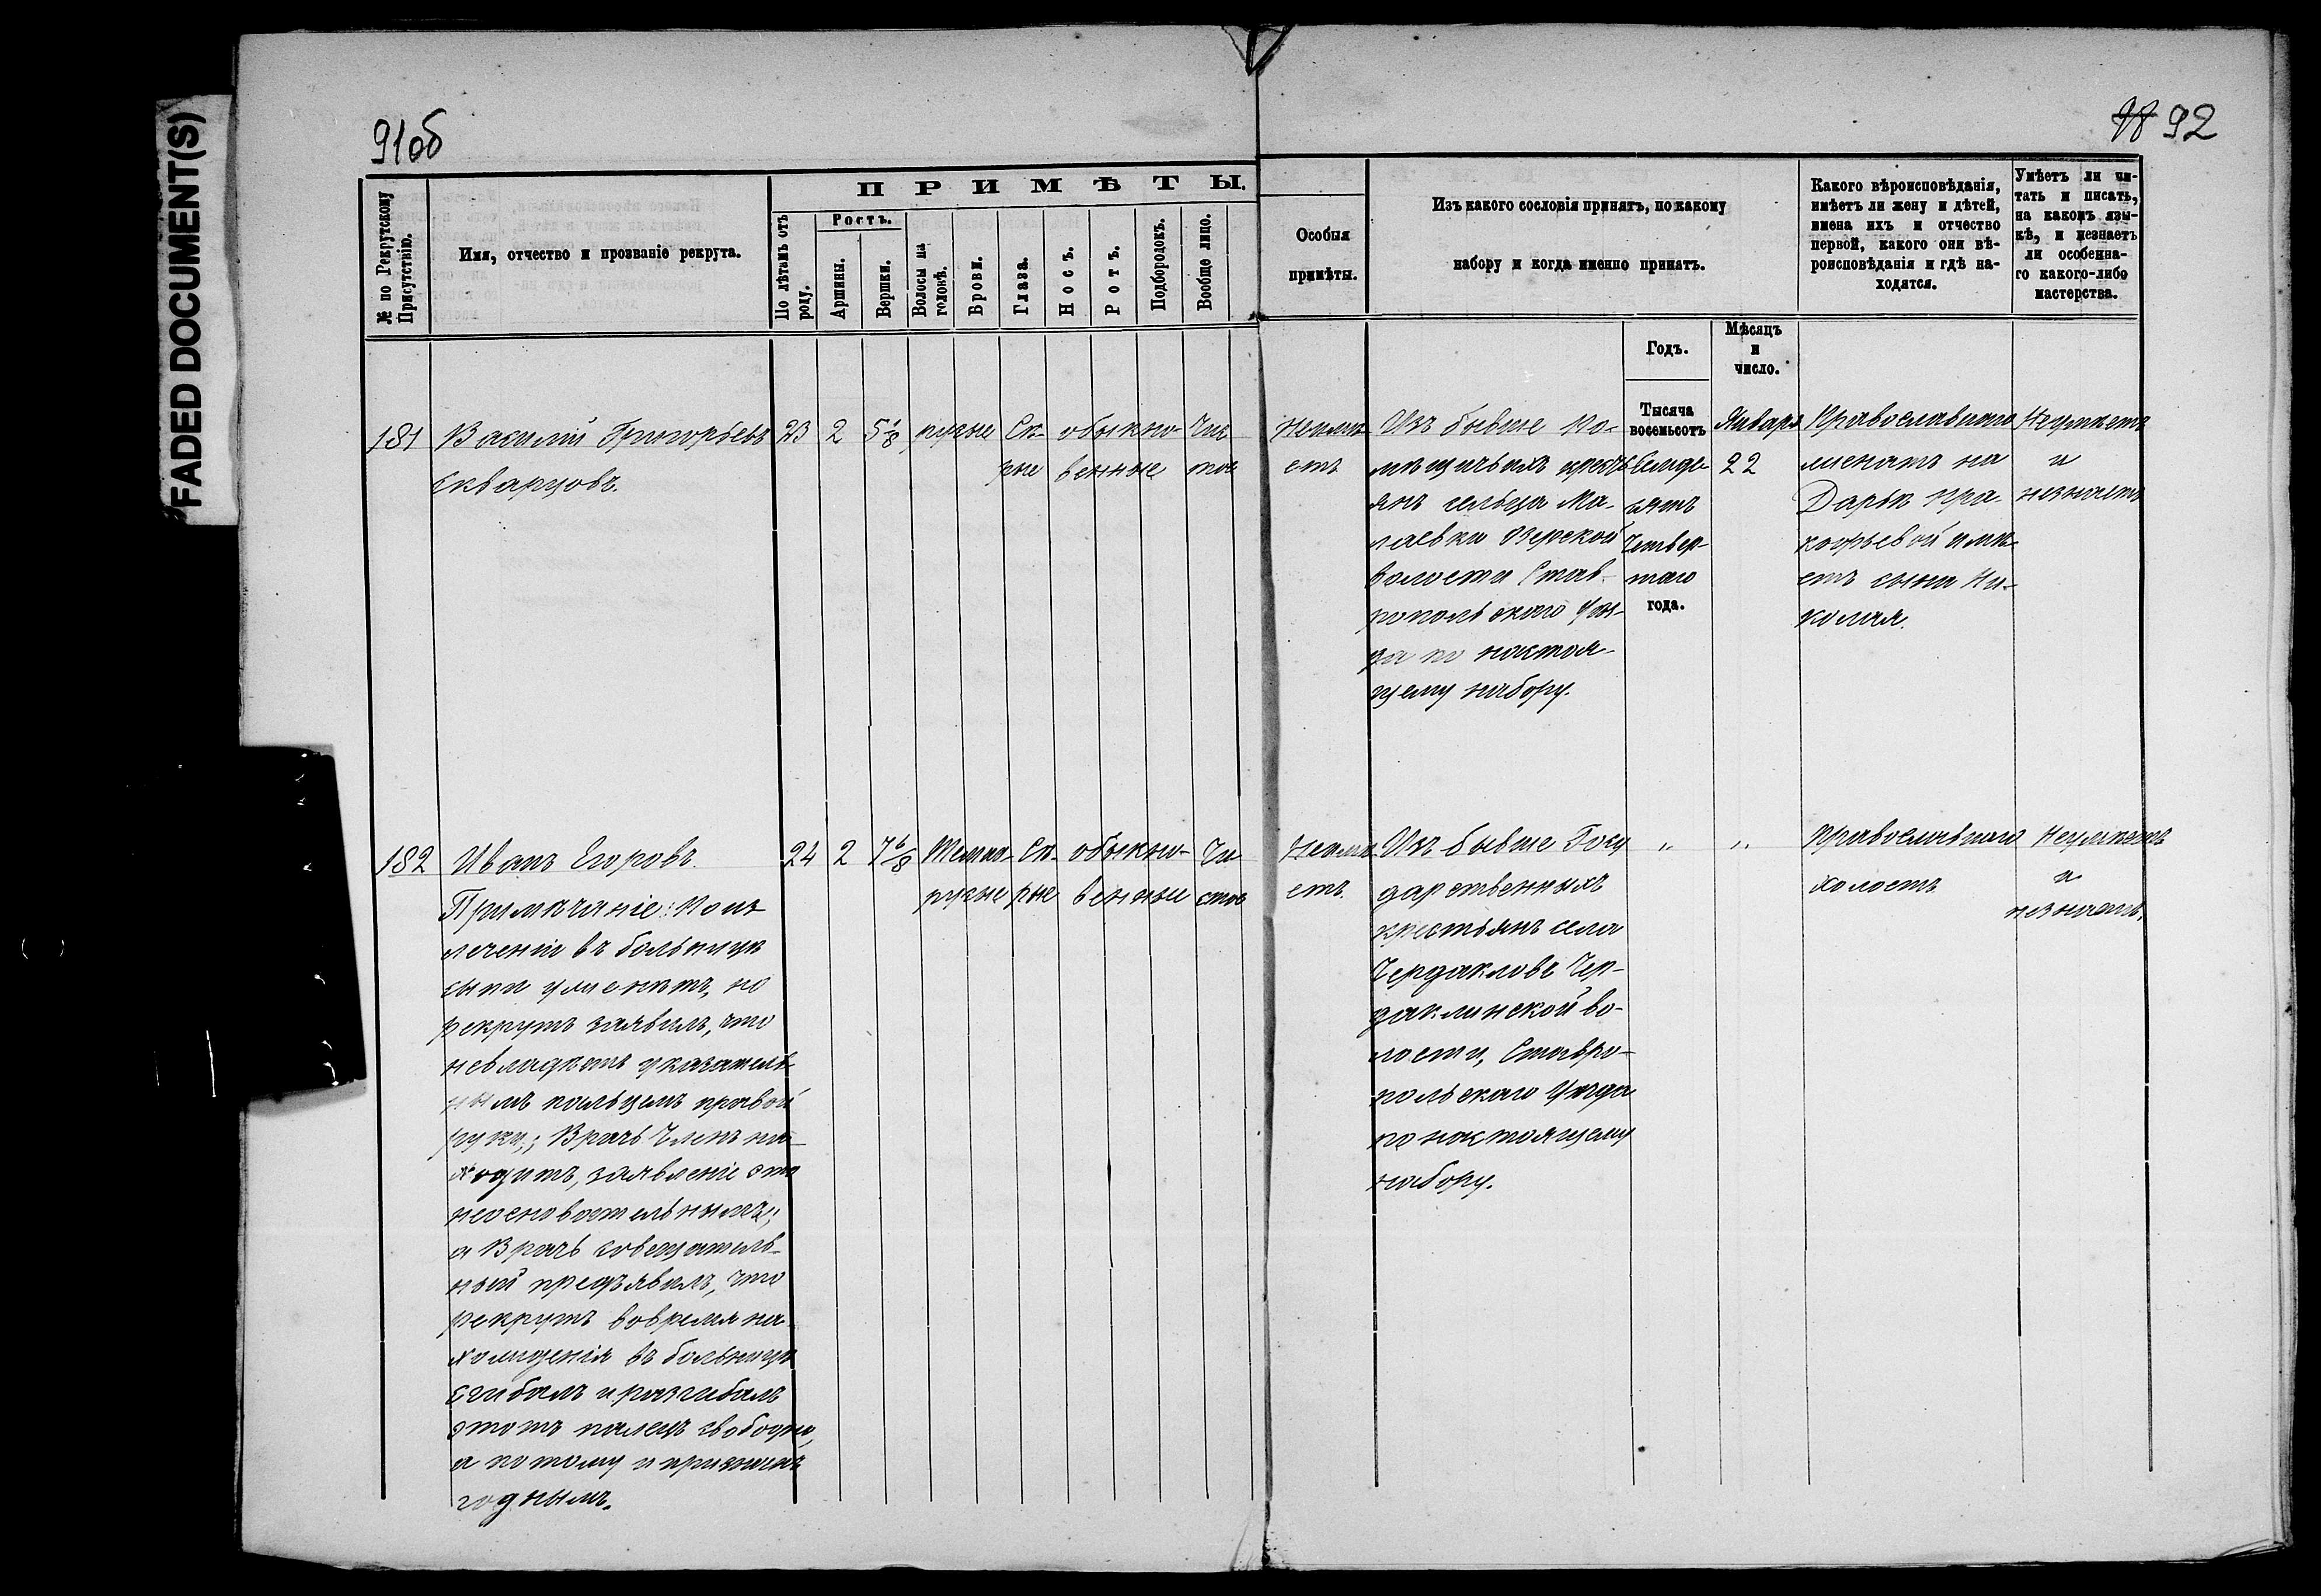 FADED DOCUMENT(S)
91об
98 92
№ по Рекрутскому Присутствію.
Имя, отчество и прозваніе рекрута.
ПРИМѢТЫ.
По лѣтамъ отъ роду.
Ростъ.
Аршины.
Вершки.
Волосы на головѣ.
Брови.
Глаза.
Носъ.
Ротъ.
Подбородокъ.
Вообще лицо.
Особыя
примѣты.
Изъ какого сословія принятъ, по какому
набору и когда именно принятъ.
Какого вѣроисповѣданія,
имѣетъ ли жену и дѣтей,
имена ихъ и отчество
первой, какого они вѣ-
роисповѣданія и гдѣ на-
ходятся.
Умѣетъ ли чи-
тать и писать,
на какомъ язы-
кѣ, и незнаетъ
ли особенна-
го какого-либо
мастерства.
Годъ.
Мѣсяцъ
и
число.
181
Василій Григорьевъ
Скварцовъ.
23
2
5 1/8
русые
Сѣ-
рые
обыкно-
венные
Чис
тое
Неимѣ
етъ
Изъ бывше По-
мѣщичьихъ кресть
янъ сельца Ма-
лаевки Озерской
волости Став-
ропольскаго Уѣз-
да по настоя-
щему набору.
Тысяча
восемьсотъ
Семде-
сятъ
Четвер-
таго
года.
Января
22
Православнаго
женатъ на
Дарьѣ Про-
кофьевой имѣ-
етъ сына Ни-
колая.
Неумѣетъ
и
незнаетъ
182
Иванъ Егоровъ.
Примѣчаніе: По из
леченіи въ больницѣ
сыпи уменѣтъ, но
рекрутъ заявилъ, что
невладѣетъ указатель-
нымъ пальцемъ правой
руки; Врачъ Членъ на-
ходитъ, заявленіе это
неосновательнымъ;
а Врачъ совещатель-
ный предъявилъ, что
рекрутъ вовремя на
хожденія въ больницѣ
сгибалъ и разгибалъ
этотъ палецъ свободно,
а потому и признанъ
годнымъ.
24
2
7 6/8
Темно-
русые
Сѣ-
рые
обыкно-
венные
Чи
стое
Неимѣ
етъ.
Изъ бывше Госу
дарственныхъ
крестьянъ села
Чердакловъ Чер-
даклинской во-
лости, Ставро-
польскаго Уѣзда
по настоящему
набору.
"
"
Православнаго
холостъ
Неумѣетъ
и
незнаетъ.